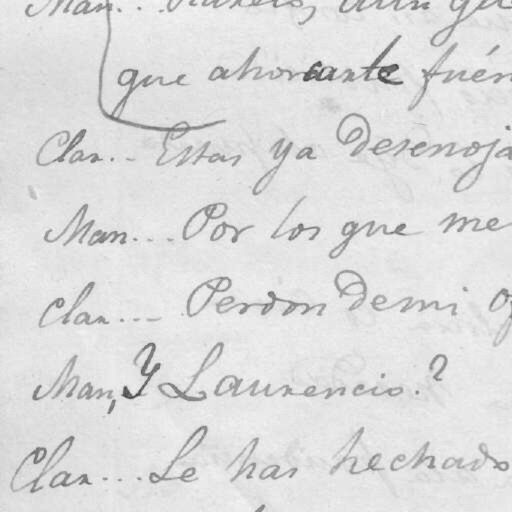 Man...
que ahorcarte fuér
Clar.. Estas ya desenoja
Man... Por los que me
Clar... Perdon demi of
Man, Y Laurencio.?
Clar... Le has hechado